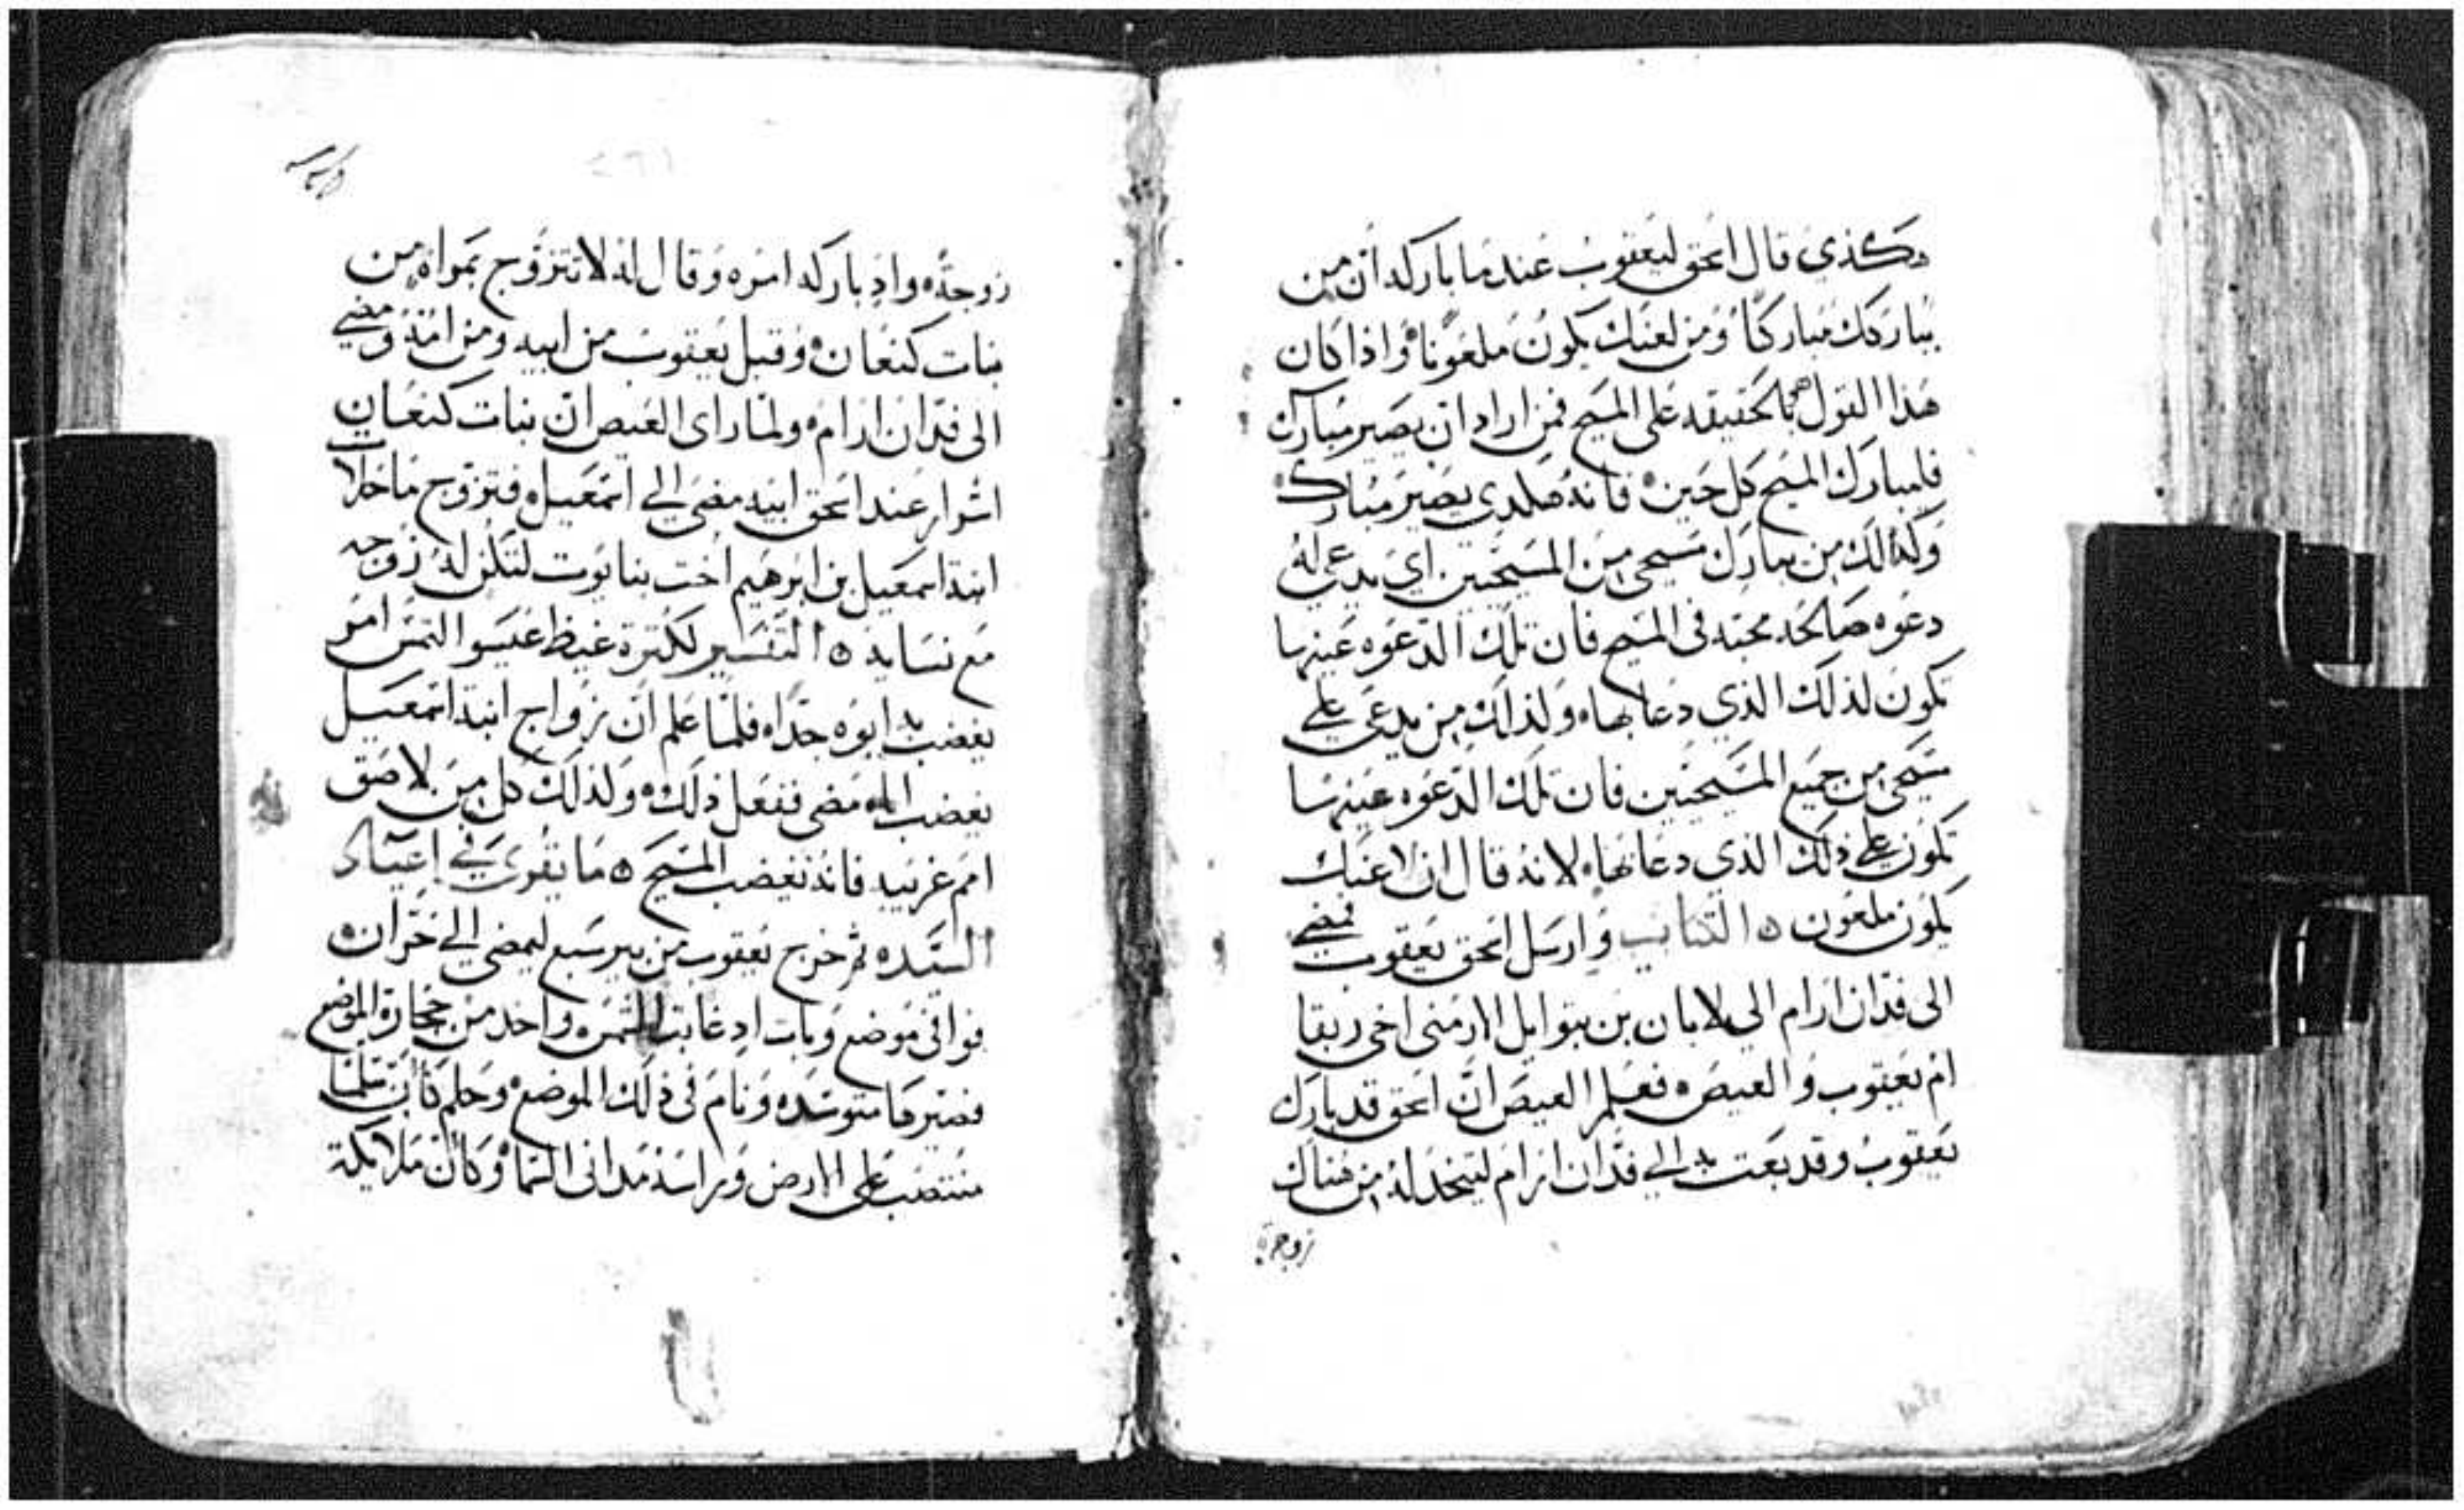 وكذي قال اسحق ليعقوب عندما باركه ان من
يباركك مباركًا ومن لعنك يكون ملعونا واذا كان
هذا القول بالحقيقه على المسيح فمن اراد ان يصير مبارك
فليبارك المسيح كل حين فانه هكدي يصير مبارك
وكذالك من يبارك مسيحي من المسيحيين اي يدعي له
دعوه صالحه محبه في المسيح فان تلك الدعوه عينها
تكون لذلك الذي دعا بها ولذلك من يدعي علي
مسيحي من جميع المسيحيين فان تلك الدعوه عينها
تكون علي ذلك الذي دعا بها لانه قال ان لاعنك
يكون ملعون ه الكتاب وارسل اسحق يعقوب فمضي
الى فدّان ارام الي لابان بن بتوايل الارمنى اخى ربقا
ام يعقوب والعيص فعلم العيص انّ اسحق قد بارك
يعقوب وقد بعت به الي فدّان ارام ليتخد له من هناك
زوجة
كراسه
زوجة واد باركه امره وقال له لا تتزوج بمراه من
بنات كنعان وقبل يعقوب من ابيه ومن امّه ومضي
الى فدّان ارام ولما راى العيص انّ بنات كنعان
اشرار عند اسحق ابيه مضى الي اسمعيل فتزوج ماخلات
ابنة اسمعيل بن ابرهيم اخت بنايوت لتكن له زوجه
مع نسايه ه التفسير لكترة غيظ عيسو التمس امر
يغضب به ابوه جدّا فلما علم ان زواج ابنة اسمعيل
يغضب ابله مضى ففعل ذلك ولذلك كل من لاصق
امم غريبه فانه يغضب المسيح ه ما يقرى في اعياد
السيّده ثم خرج يعقوب من بيرسبع ليمضى الي حرّان
فوافى موضع وبات اد غابت الشمس واخد من حجارة الموضع
فصيرها متوسده ونام فى ذلك الموضع وحلم كان سلما
منتصب على الارض وراسه مدانى السما وكان ملايكة